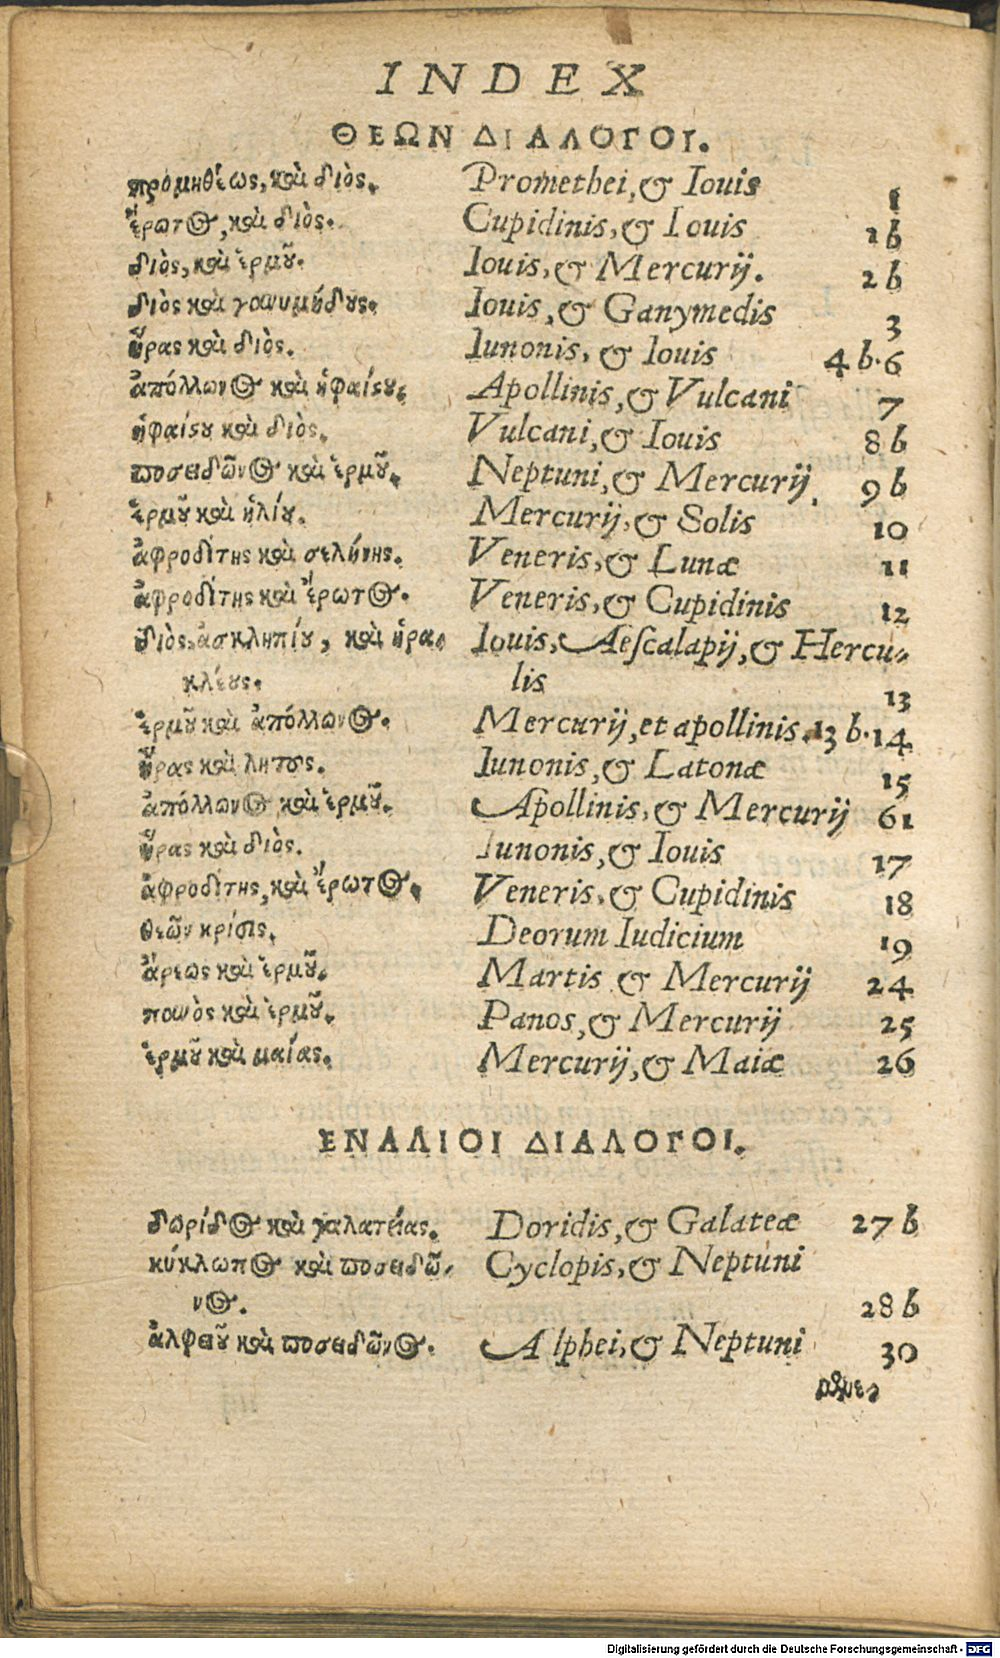 INDEX
ΘΕΩΝ ΔΙΑΛΟΓΟΙ.
προμηθέως, καὶ διὸς. Promethei, & Iouis 1
ἔρωτος, καὶ διὸς. Cupidinis, & Iouis 1 b
διὸς, καὶ ἑρμοῦ. Iouis, & Mercurij. 2 b
διὸς καὶ γανυμήδους. Iouis, & Ganymedis 3
ἥρας καὶ διὸς. Iunonis, & Iouis 4 b. 6
ἀπόλλωνος καὶ ἡφαίστου. Apollinis, & Vulcani 7
ἡφαίστου καὶ διὸς. Vulcani, & Iouis 8 b
ποσειδῶνος καὶ ἑρμοῦ. Neptuni, & Mercurij. 9 b
ἑρμοῦ καὶ ἡλίου. Mercurij, & Solis 10
ἀφροδίτης καὶ σελήνης. Veneris, & Lunæ 11
ἀφροδίτης καὶ ἔρωτος. Veneris, & Cupidinis 12
διὸς, ἀσκληπίου, καὶ ἡρα- Iouis, Aeſcalapij, & Hercu-
κλέους. lis 13
ἑρμοῦ καὶ ἀπόλλωνος. Mercurij, et apollinis. 13 b. 14
ἥρας καὶ λητοῦς. Iunonis, & Latonæ 15
ἀπόλλωνος καὶ ἑρμοῦ. Apollinis, & Mercurij 61
ἥρας καὶ διὸς. Iunonis, & Iouis 17
ἀφροδίτης, καὶ ἔρωτος. Veneris, & Cupidinis 18
θεῶν κρίσις. Deorum Iudicium 19
ἄρεως καὶ ἑρμοῦ. Martis & Mercurij 24
πανὸς καὶ ἑρμοῦ. Panos, & Mercurij 25
ἑρμοῦ καὶ μαίας. Mercurij, & Maiæ 26
ΕΝΑΛΙΟΙ ΔΙΑΛΟΓΟΙ.
δωρίδος καὶ γαλατείας. Doridis, & Galateæ 27 b
κύκλωπος καὶ ποσειδῶ- Cyclopis, & Neptuni
νος. 28 b
ἀλφειοῦ καὶ ποσειδῶνος. Alphei, & Neptuni 30
Digitalisierung gefördert durch die Deutsche Forschungsgemeinschaft - DFG